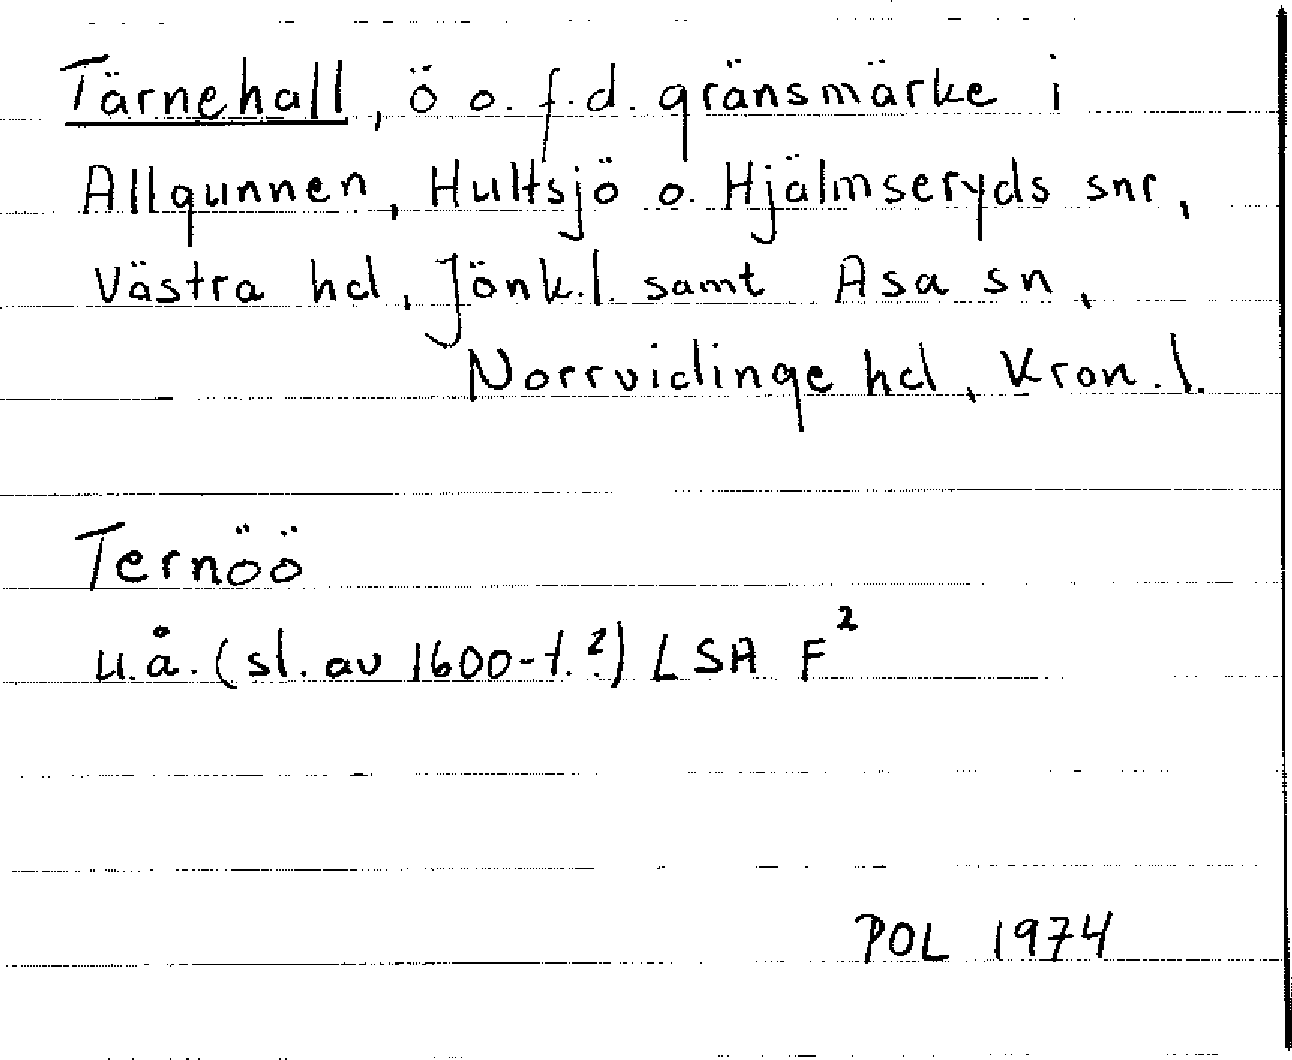 Tärnehall, ö o. f.d. gränsmärke i
Allgunnen, Hultsjö o. Hjälmseryds snr,
Västra hd, Jönk.l. samt Asa sn,
Norrvidinge hd, Kron.l.
Ternöö
u.å. (sl. av 1600-t.?) LSA F²
POL 1974